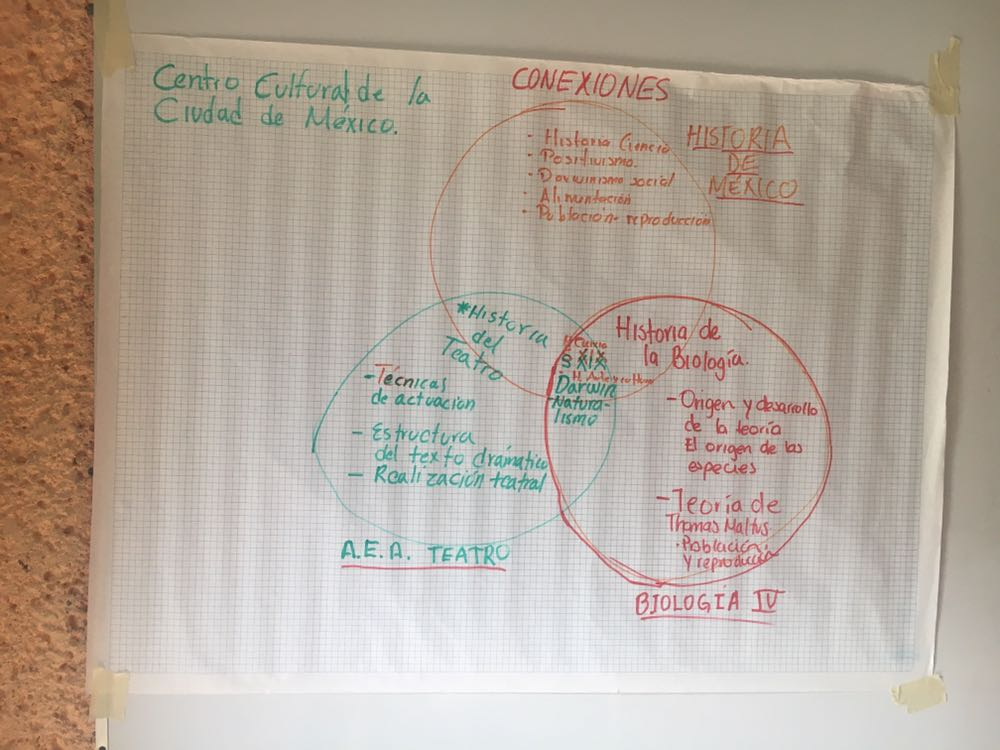 Centro Cultural de la
Ciudad de México.
CONEXIONES
HISTORIA
DE
MÉXICO
- Historia Ciencia
- Positivismo.
- Darwinismo social
- Alimentación
- Población- reproducción
*Historia
del
Teatro
-Técnicas
de actuación
- Estructura
del texto dramático
- Realización teatral
A.E.A. TEATRO
S XIX
Darwin
-Natura-
lismo
Historia de
la Biología.
-Origen y desarrollo
de la teoría
El origen de las
especies
-Teoría de
Thomas Maltus.
·Población
y reproducción
BIOLOGÍA IV